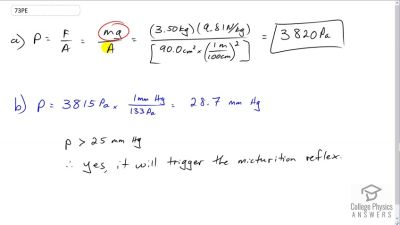 73PE
a) P = F/A = ma/A = (3.50kg)(9.81N/kg) / [90.0cm² × (1m/100cm)²] = 3820 Pa
b) P = 3815 Pa × 1mm Hg/133 Pa = 28.7 mm Hg
P > 25 mm Hg
∴ yes, it will trigger the micturition reflex.
College Physics
ANSWERS